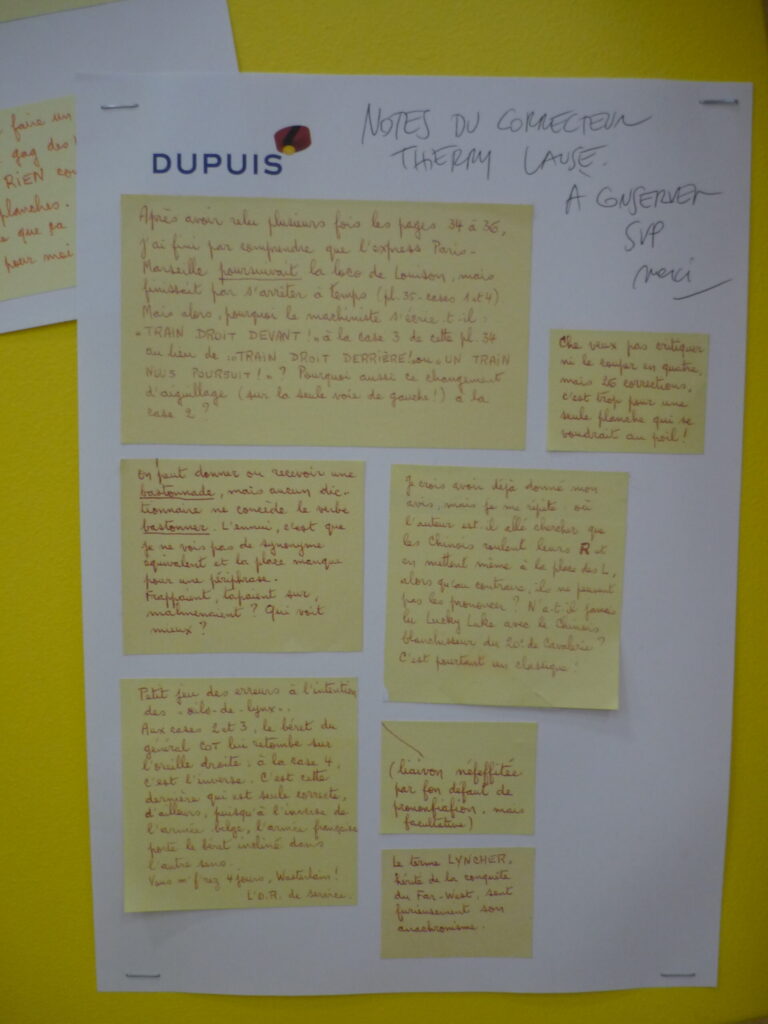 faire un
gag des
RIEN con
planches.
e que ça
pour moi
DUPUIS
NOTES DU CORRECTEUR
THIERRY LAUSE.
A CONSERVER
SVP
merci
Après avoir relu plusieurs fois les pages 34 à 36,
j'ai fini par comprendre que l'express Paris-
Marseille poursuivait la loco de Louison, mais
finissait par s'arrêter à temps (pl. 35 - cases 1 et 4)
Mais alors, pourquoi le machiniste s'écrie-t-il :
"TRAIN DROIT DEVANT !" à la case 3 de cette pl. 34
au lieu de : "TRAIN DROIT DERRIÈRE! ou "UN TRAIN
NOUS POURSUIT ! " ? Pourquoi aussi ce changement
d'aiguillage (sur la seule voie de gauche !) à la
case 2 ?
Che veux pas critiquer
ni le couper en quatre,
mais 26 corrections,
c'est trop pour une
seule planche qui se
voudrait au poil !
On peut donner ou recevoir une
bastonnade, mais aucun dic-
tionnaire ne concède le verbe
bastonner. L'ennui, c'est que
je ne vois pas de synonyme
équivalent et la place manque
pour une périphrase.
Frappaient, tapaient sur,
malmenaient ? Qui voit
mieux ?
Je crois avoir déjà donné mon
avis, mais je me répète : où
l'auteur est-il allé chercher que
les Chinois roulent leurs R et
en mettent même à la place des L,
alors qu'au contraire, ils ne peuvent
pas les prononcer ? N'a-t-il jamais
lu Lucky Luke avec le Chinois
blanchisseur du 20e de Cavalerie ?
C'est pourtant un classique !
Petit jeu des erreurs à l'intention
des "oeils-de-lynx".
Aux cases 2 et 3, le béret du
général COT lui retombe sur
l'oreille droite ; à la case 4,
c'est l'inverse. C'est cette
dernière qui est seule correcte,
d'ailleurs, puisqu'à l'inverse de
l'armée belge, l'armée française
porte le béret incliné dans
l'autre sens.
Vous m'f'rez 4 jours, Wasterlain !
L'O.R. de service.
(liaivon néfeffitée
par fon défaut de
prononfiafion, mais
facultative)
Le terme LYNCHER,
hérité de la conquête
du Far-West, sent
furieusement son
anachronisme.